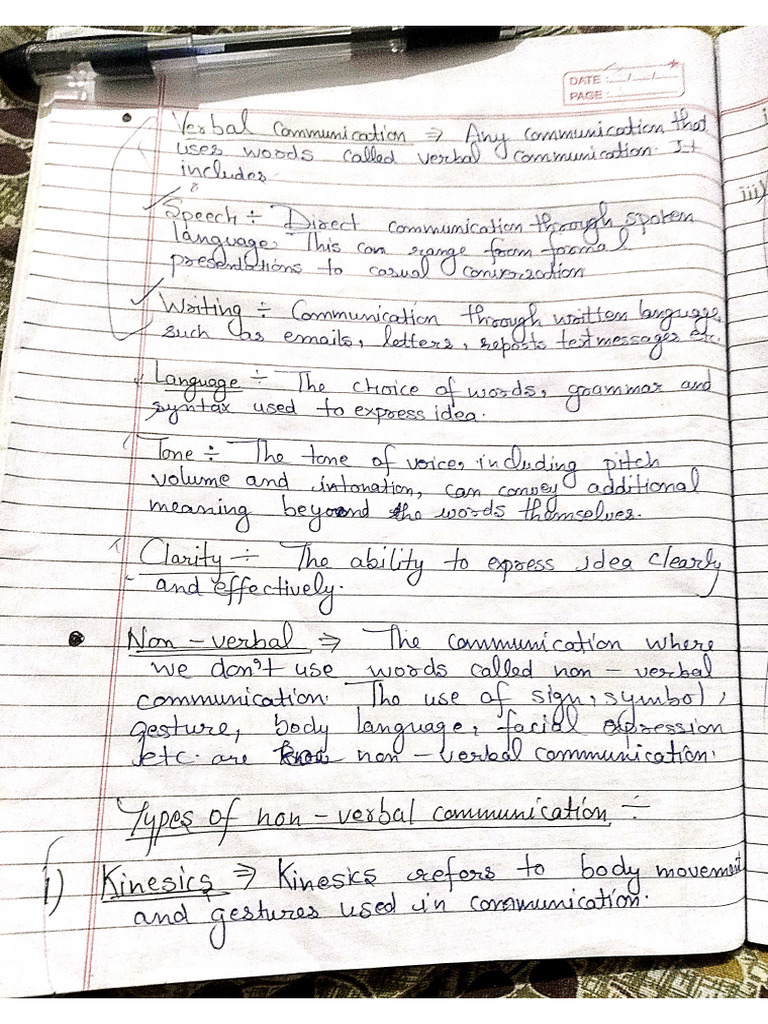 DATE :__/__/__
PAGE :
Verbal Communication ⇒ Any communication that
uses words called verbal communication. It
includes :
Speech ÷ Direct communication through spoken
language. This can range from formal
presentations to casual conversation
Writing ÷ Communication through written language,
such as emails, letters, reports text messages etc.
Language ÷ The choice of words, grammar and
syntax used to express idea.
Tone ÷ The tone of voice, including pitch
volume and intonation, can convey additional
meaning beyond the words themselves.
Clarity ÷ The ability to express idea clearly
and effectively.
Non-verbal ⇒ The communication where
we don't use words called non-verbal
communication. The use of sign, symbol,
gesture, body language, facial expression
etc. are non-verbal communication.
Types of non-verbal communication ÷
i) Kinesics ⇒ Kinesics refers to body movement
and gestures used in communication.
iii)